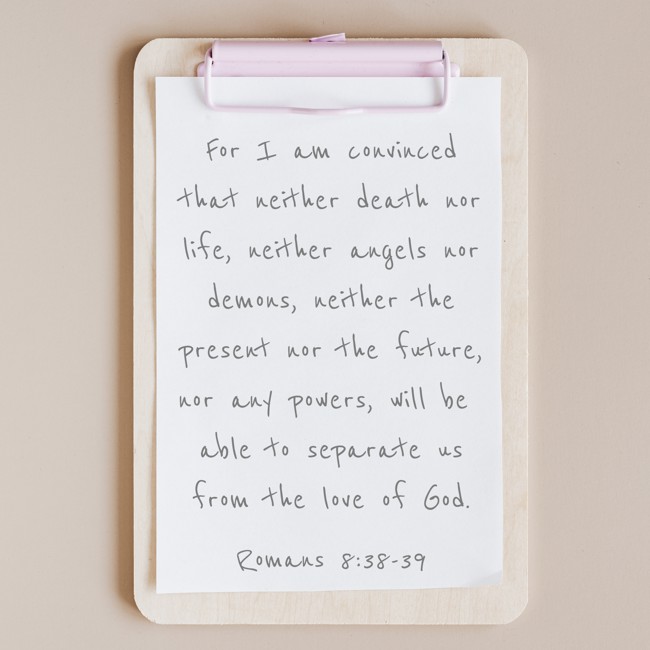 For I am convinced
that neither death nor
life, neither angels nor
demons, neither the
present nor the future,
nor any powers, will be
able to separate us
from the love of God.
Romans 8:38-39